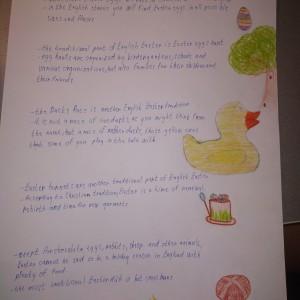 - in the English stores you will find Easter eggs in all possible
sizes and
- the traditional part of English Easter is Easter eggs hunt.
- egg hunts are organized by kindergartens, schools and
various organizations, but also families for their children and
their friends.
- the Ducks Race is another English Easter tradition
- it is not a race of live ducks, as you might think from
the name, but a race of rubber ducks, those yellow ones
that some of you play in the bath with.
- Easter bonnets are another traditional part of English Easter
- According to Christian tradition, Easter is a time of renewal,
rebirth and time for new garments.
- except for chocolate eggs, rabbits, sheep and other animals,
Easter cannot be said to be a holiday season in England with
plenty of food.
- the most traditional Easter dish is hot